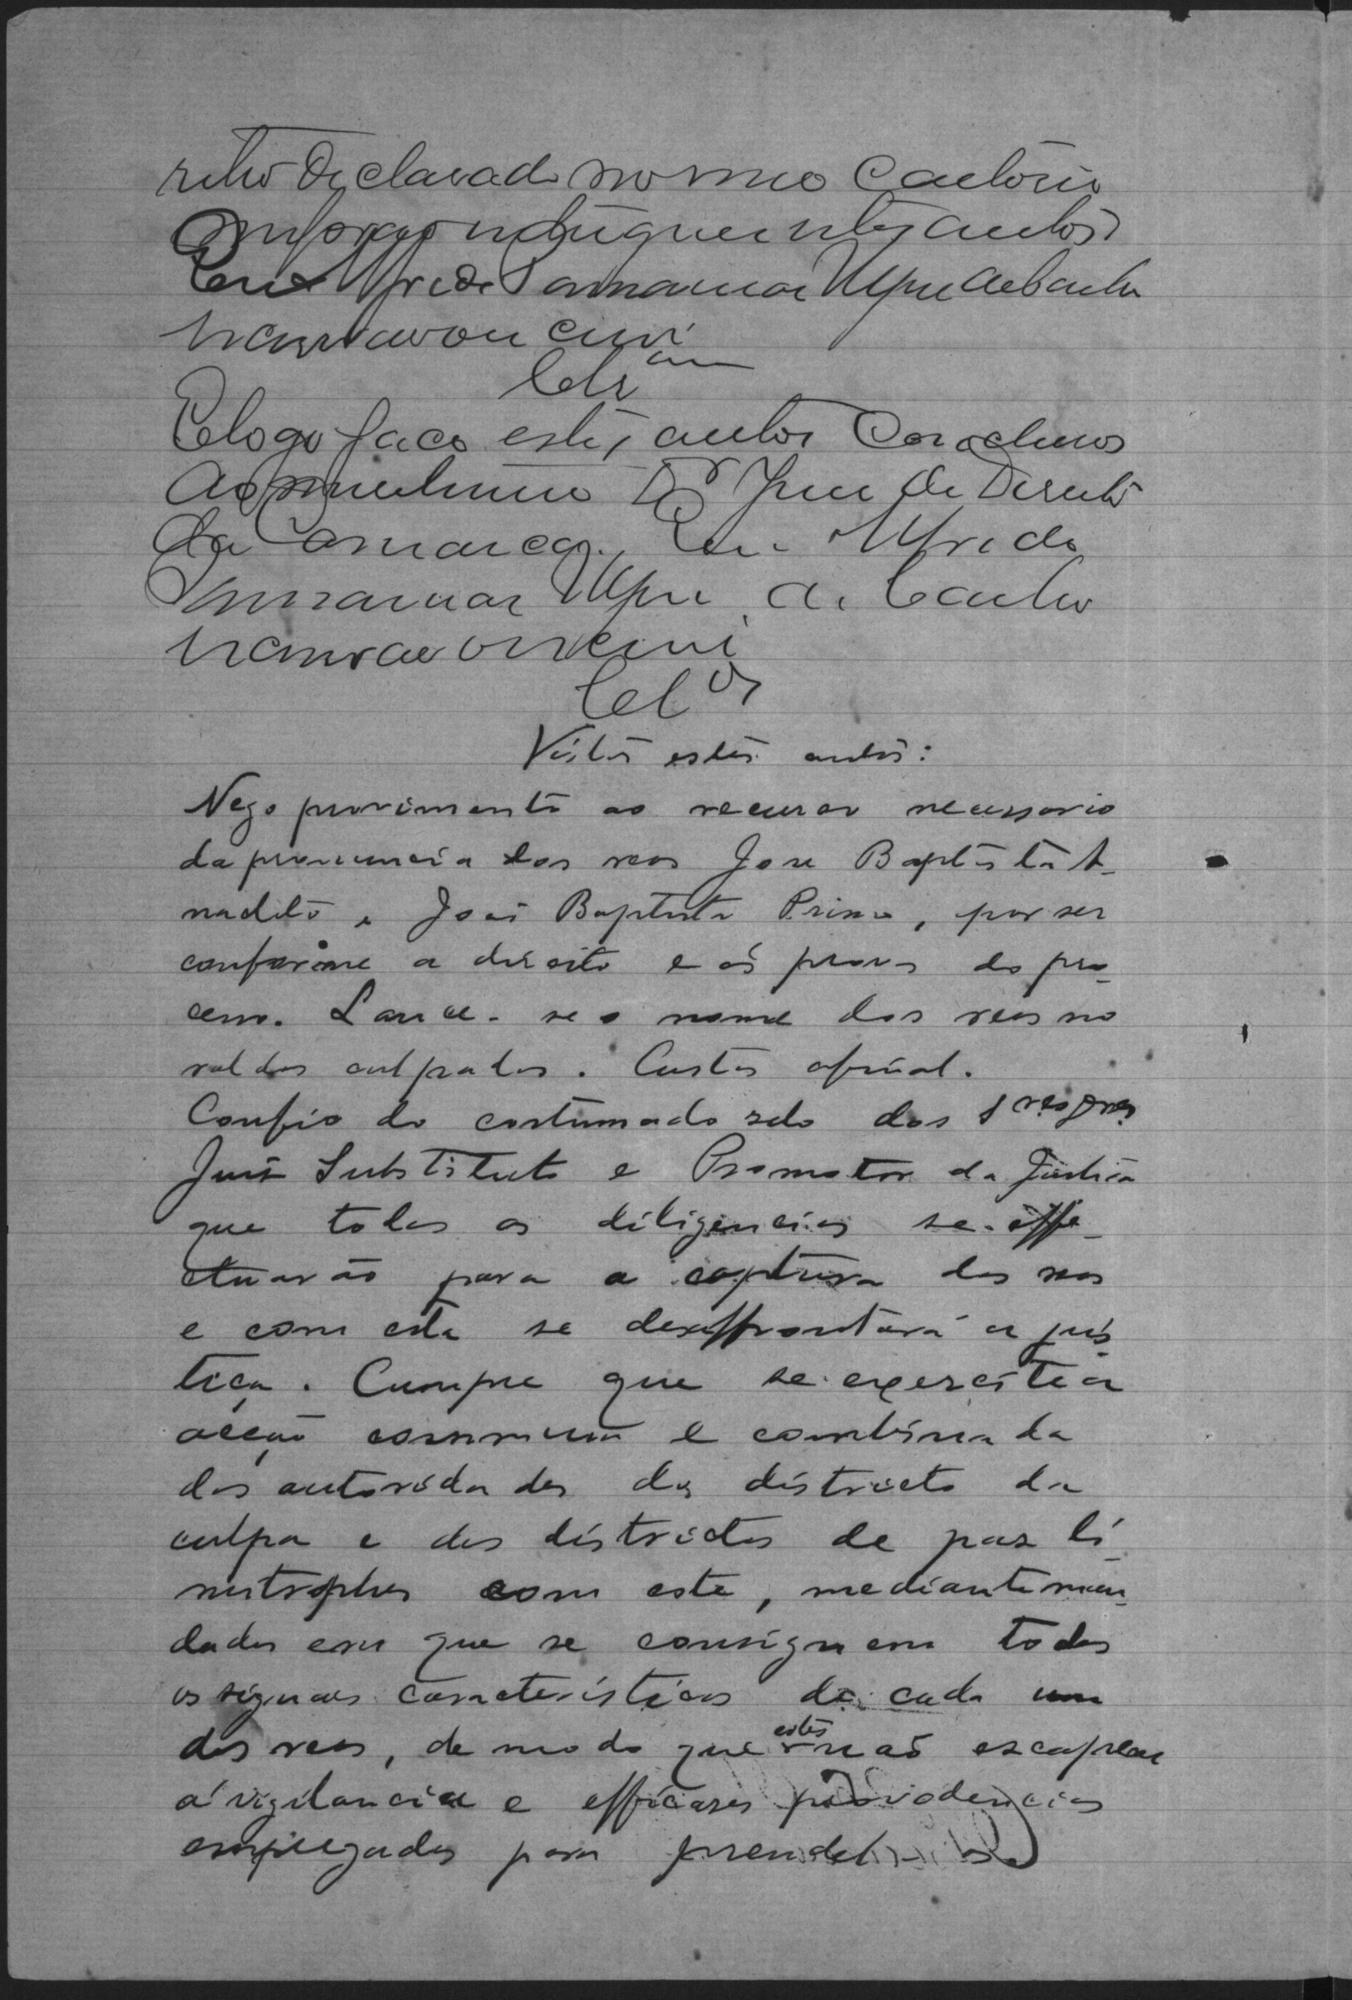 retro declarado no meo Cartorio
me foram entregues estes autos
Eu Alfredo
escrivão escrevi
Cls
E logo faço estes autos Conclusos
ao meritissimo Dr Juiz de Direito
da Comarca. Eu Alfredo
escrevi
Cls
Vistos estes autos:
Nego provimento ao recurso necessario
da pronuncia dos reos Jose Baptista A-
nacleto e João Baptista Primo, por ser
conforme a direito e ás provas do pro-
cesso. Lance-se o nome dos reos no
rol dos culpados. Custas afinal.
Confio do costumado zelo dos
Juiz Substituto e Promotor da Justiça
que todas as diligencias se effe-
ctuarão para a captura dos reos
e com esta se desaffrontará a jus-
tiça. Cumpre que se exercite a
acção commum e combinada
das autoridades do districto da
culpa e dos districtos de paz li-
mitrophes com este, mediante man-
dados em que se consignem todos
os signaes caracteristicos de cada um
dos reos, de modo que estes não escapem
á vigilancia e efficazes providencias
empregadas para prendel-os.